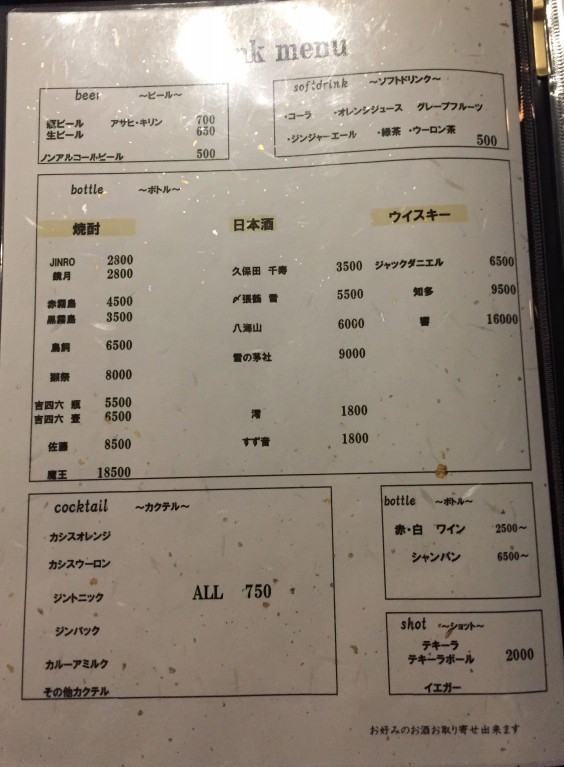 nk menu
beer ～ビール～
瓶ビール アサヒ・キリン 700
生ビール 650
ノンアルコールビール 500
softdrink ～ソフトドリンク～
・コーラ ・オレンジジュース グレープフルーツ
・ジンジャーエール ・緑茶 ・ウーロン茶
500
bottle ～ボトル～
焼酎
JINRO 2800
鏡月 2800
赤霧島 4500
黒霧島 3500
鳥飼 6500
獺祭 8000
吉四六 瓶 5500
吉四六 壺 6500
佐藤 8500
魔王 18500
日本酒
久保田 千寿 3500
〆張鶴 雪 5500
八海山 6000
雪の茅社 9000
澪 1800
すず音 1800
ウイスキー
ジャックダニエル 6500
知多 9500
響 16000
cocktail ～カクテル～
カシスオレンジ
カシスウーロン
ジントニック
ジンバック
カルーアミルク
その他カクテル
ALL 750
bottle ～ボトル～
赤・白 ワイン 2500～
シャンパン 6500～
shot ～ショット～
テキーラ
テキーラボール 2000
イエガー
お好みのお酒お取り寄せ出来ます